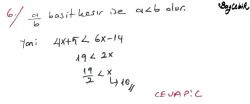 Başarılar
6. a/b basit kesir ise a<b olur.
Yani 4x+5 < 6x-14
19 < 2x
19/2 < x
↳ 10//
CEVAP: C